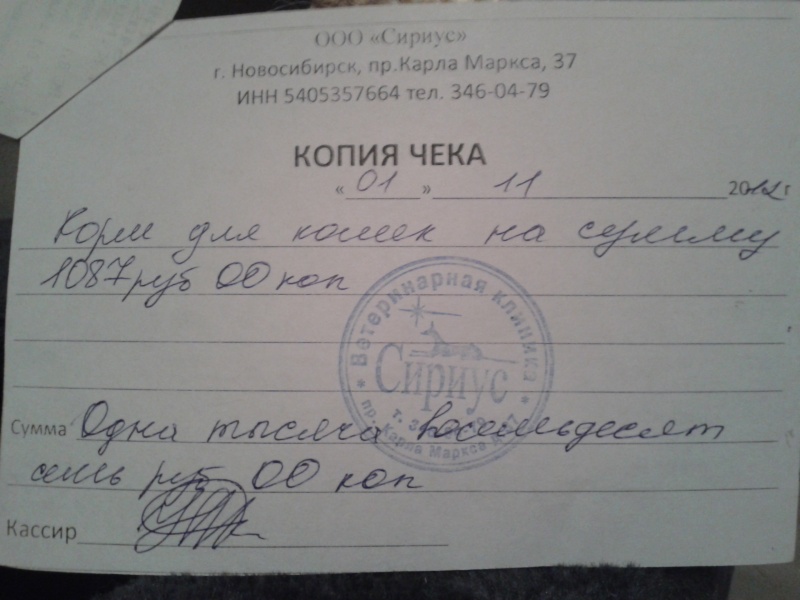 ООО «Сириус»
г. Новосибирск, пр.Карла Маркса, 37
ИНН 5405357664 тел. 346-04-79
КОПИЯ ЧЕКА
« 01 » 11 2012 г
Корм для кошек на сумму
1087 руб 00 коп
Ветеринарная клиника
Сириус
т. 3
пр. Карла Маркса 37
Сумма Одна тысяча восемьдесят
семь руб 00 коп
Кассир